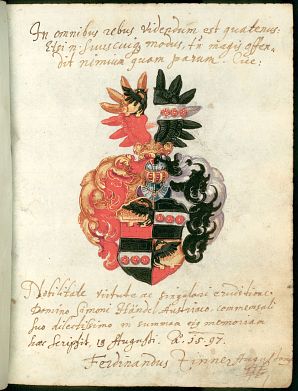 In omnibus rebus videndum est quatenus:
Etsi n: suus cuiq modus, tn magis offen-
dit nimium quam parum. Cic:
Nobilitate virtute ac singulari eruditione
Domino Simoni Händel Austriaco, commensali
suo dilectissimo in summam memoriam
haec scripsit, 18 Augusti. A. 1597.
Ferdinandus Zinner Augustanus